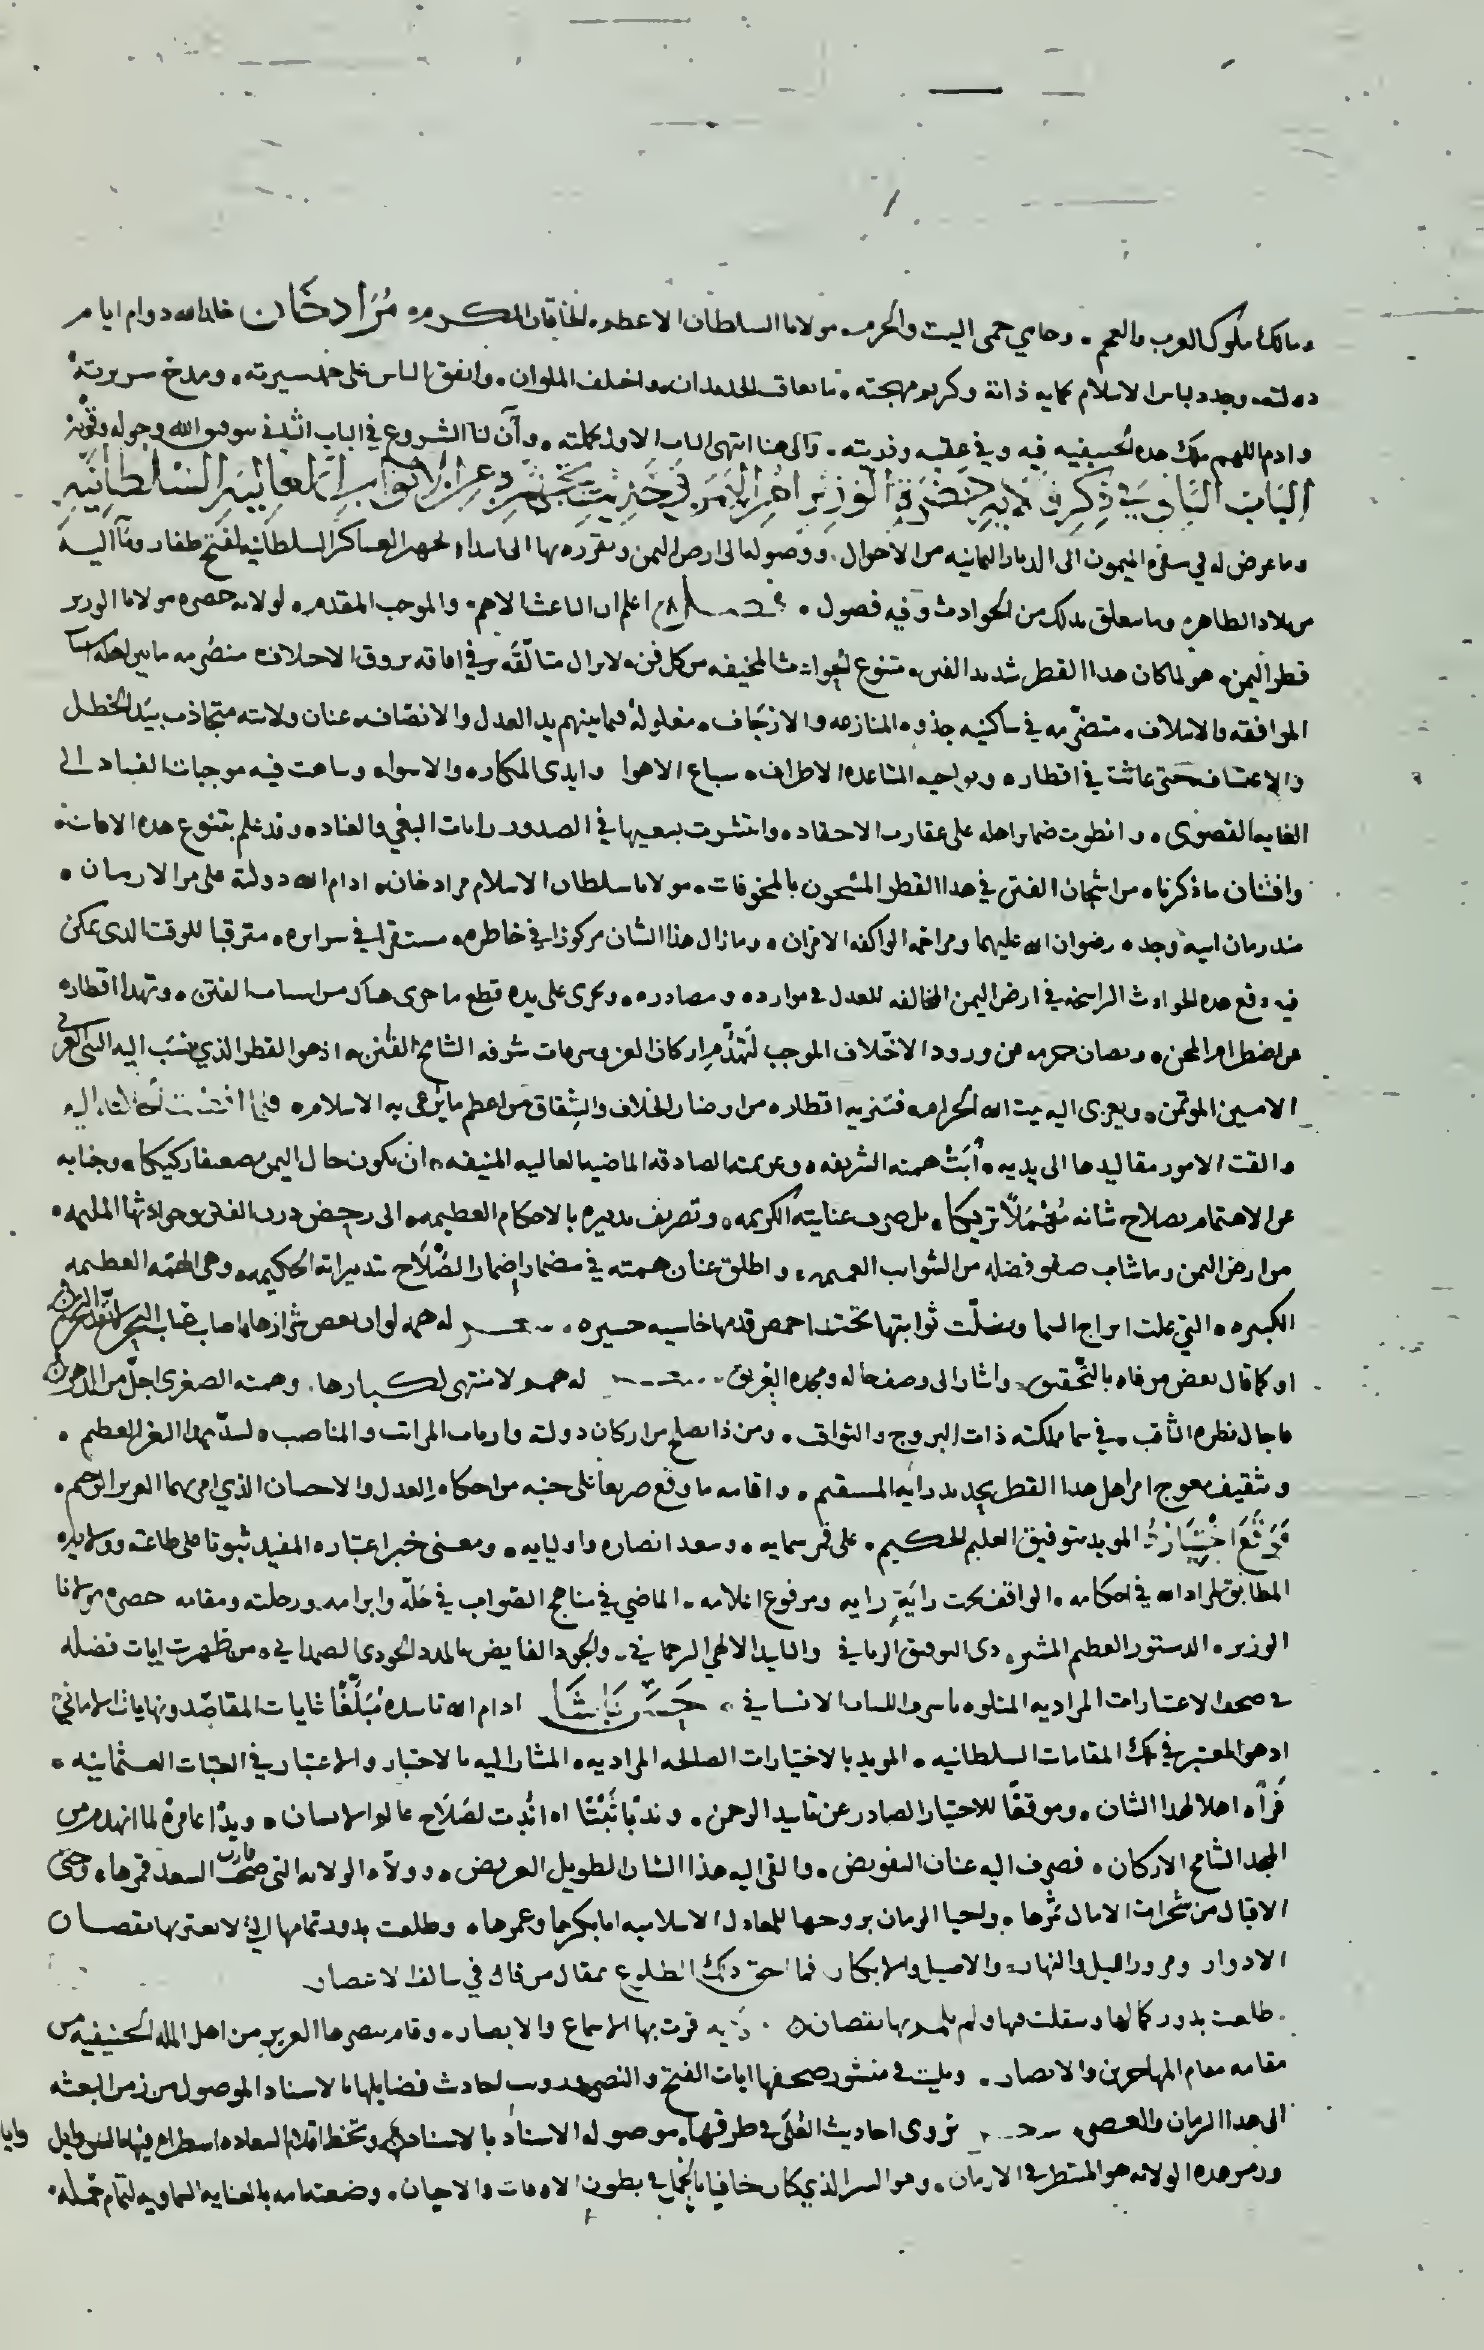 ومالك ملوك العرب والعجم. وحامي حمى البيت والحرم. مولانا السلطان الاعظم. الخاقان المكرم. مُرَاد خَان خلد الله دوام ايام
دولته. وجدد لباس الاسلام بحمايه ذاته وكريم مهجته. ما تعاقب الجديدان. واختلف الملوان. واتفق الناس على حمد سيرته. ومدح سريرته
وادم اللهم ملك هذه الحنيفيه فيه وفي عقبه وذريته. والى هنا انتهى الباب الاول بكلمته. وآن لنا الشروع في الباب الثاني بتوفيق الله وحوله وقوته
الباب الثاني في ذكر ولاية حضرة الوزير اقليم اليمن من حين تجهيزه عن الابواب العاليه السلطانيه
وما عرض له في سفره الميمون الى الديار اليمانيه من الاحوال. ووصوله الى ارض اليمن وتقرره بها الى ابتداء تجهيز العساكر السلطانيه لفتح ظفار وما اليه
من بلاد الظاهر. وما يتعلق بذلك من الحوادث وفيه فصول. فصل اعلم ان الباعث الاهم. والموجب المقدم. لولايه حضره مولانا الوزير
قطر اليمن. هو لما كان هذا القطر شديد الفتن. متنوع الحوادث المخيفه من كل فن. لا يزال متالقه في افاقه بروق الاختلاف. منصرمه ما بين اهله اسباب
الموافقه والائتلاف. متضرمه في ساكنيه جذوه المنازعه والارتجاف. مغلوله فيما بينهم يد العدل والانصاف. عنان ولايته متجاذب بيد الخطل
والاعتساف. حتى عاثت في اقطاره ونواحيه المتباعده الاطراف. سباع الاهوا وايدي المكاره والاسواء. وساعت فيه موجبات الفساد الى
الغايه القصوى. وانطوت ضماير اهله على عقارب الاحقاد. وانتشرت بسعيها في الصدور رايات البغي والعناد. وقد علم بتنوع هذه الافات
وافتنان ما ذكرناه من اشجان الفتن في هذا القطر المشحون بالمخوفات. مولانا سلطان الاسلام مراد خان. ادام الله دولته على مر الازمان.
منذ زمان ابيه وجده. رضوان الله عليهما ومراحمه الواكفه الامزان. وما زال هذا الشان مركوزا في خاطره. مستقرا في سرايره. مترقبا للوقت الذي يمكن
فيه دفع هذه الحوادث الراسخه في ارض اليمن المخالفه للعدل في موارده ومصادره. ويجري على يده قطع ما جرى هناك من اسباب الفتن. وتهدا اقطاره
عن اضطرام المحن. ويصان حرمه من ورود الاختلاف الموجب لتهدم اركان العز وسرمات شرفه الشامخ القنن. اذ هو القطر الذي ينسب اليه النبي العربي
الامين الموتمن. ويعزى اليه بيت الله الحرام. فتنزيه اقطاره من اوضار الخلاف والشقاق من اعظم ما يرعى به الاسلام. فلما افضت الخلافه اليه
والقت الامور مقاليدها الى يديه. أبت همته الشريفه. وعزيمته الصادقه الماضيه العاليه المنيفه. ان يكون حال اليمن ضعيفا ركيكا. وجنابه
عن الاهتمام بصلاح شانه مُهملا تريكا. بل صرف عنايته الكريمه. وتصريف تدبيره بالاحكام العظيمه. الى رحض درن الفتن وحوادثها المليمه.
من ارض اليمن وما شاب صفو فضله من الشوايب العميمه. واطلق عنان همته في مضمار اضمار الصلاح بتدبيراته الحكيمه. وهي الهمه العظيمه
الكبيره. التي علت ابراج السما وضلت ثوابتها تحت اخمص قدمها خاسيه حسيره. شعر له همم لو ان بعض
او كما قال بعض من فاه بالتحقيق. واشار الى وصف حاله ومجده العريق. شعر له همم لا منتهى لكبارها. وهمته الصغرى اجل من الدهر
فاجال نظره الثاقب. في سما مملكته ذات البروج والثواقب. ومن ذا يصلح من اركان دولته وارباب المراتب والمناصب. لسد هذا الثغر العظيم.
وتثقيف معوج امر اهل هذا القطر بجديد رايه المستقيم. واقامه ما وقع صريعا على جنبه من احكام العدل والاحسان الذي امر بهما العزيز الرحيم.
فوقع اختيارُه المويد بتوفيق العليم الحكيم. على قمر سمايه. وسعد انصاره واوليايه. ومعنى خبر اعتباره المفيد ثبوتا على طاعته وولايه
المطابق لمراد الله في احكامه. الواقف تحت رايةِ رايه ومرفوع اعلامه. الماضي في مناهج الصواب في حَلّه وابرامه. ورحلته ومقامه حضره مولانا
الوزير. الدستور العظيم المشير. ذي التوفيق الرباني والتاييد الالهي الرحماني. والجود الفايض بالمدد الجودي الصمداني. من ظهرت ايات فضله
في صحف الاعتبارات المراديه المتلوه باشرف اللسان الانساني. حَسَن بَاشَا ادام الله تاييده مُبَلِّغًا غايات المقاصد ونهايات الاماني
اذ هو المعتبر في تلك المقامات السلطانيه. المويد بالاختيارات الصالحه المراديه. المشار اليه بالاختبار والاعتبار في العتبات العثمانيه.
فرآه اهلا لهذا الشان. وموقعًا للاختيار الصادر عن تاييد الرحمن. وندبًا ثَبْتًا اذا نُدِبَ لصَلَاح عالم الانسان. ويدًا عامرة لما انهدم من
المجد الشامخ الاركان. فصرف اليه عنان التفويض. والقى اليه هذا الشان الطويل العريض. وولاه الولايه التي قارن السعد قمرها. وجنى
الاقبال من شجرات الامال ثمرها. واحيا الزمان بروحها للمعادل الاسلاميه ابا بكرها وعمرها. وطلعت بدور تمامها التي لا يعتريها نقصان
الادوار ومرور الليل والنهار. والاصيل والابكار فما احق ذلك الطلوع بمقال من قال في سالف الاعصار
طلعت بدور كمالها وسقلت فيها ولم يلمم بها نقصان. ولايه قرت بها الاسماع والابصار. وقام بنصرها العزيز من اهل المله الحنيفيه من
مقامه مقام المهاجرين والانصار. وتليت في منشور صحفها ايات الفتح والنصر. وروت احاديث فضايلها بالاسناد الموصول من زمن البعثه
الى هذا الزمان والعصر. شعر تروى احاديث العلى في طرقها. موصوله الاسناد بالاسناد
وزمن هذه الولايه هو المنتظر في الازمان. وهو السر الذي كان خافيا في بطون الاوقات والاحيان. وضعته امه بالعنايه السماويه لتمام حمله.
وابا